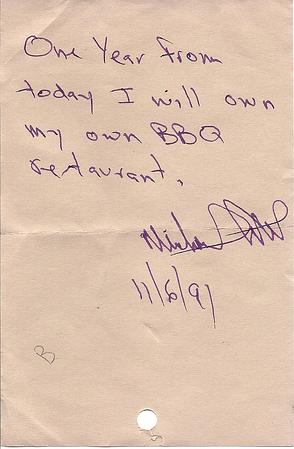 One Year From
today I will own
my own BBQ
restaurant.
11/6/91
B